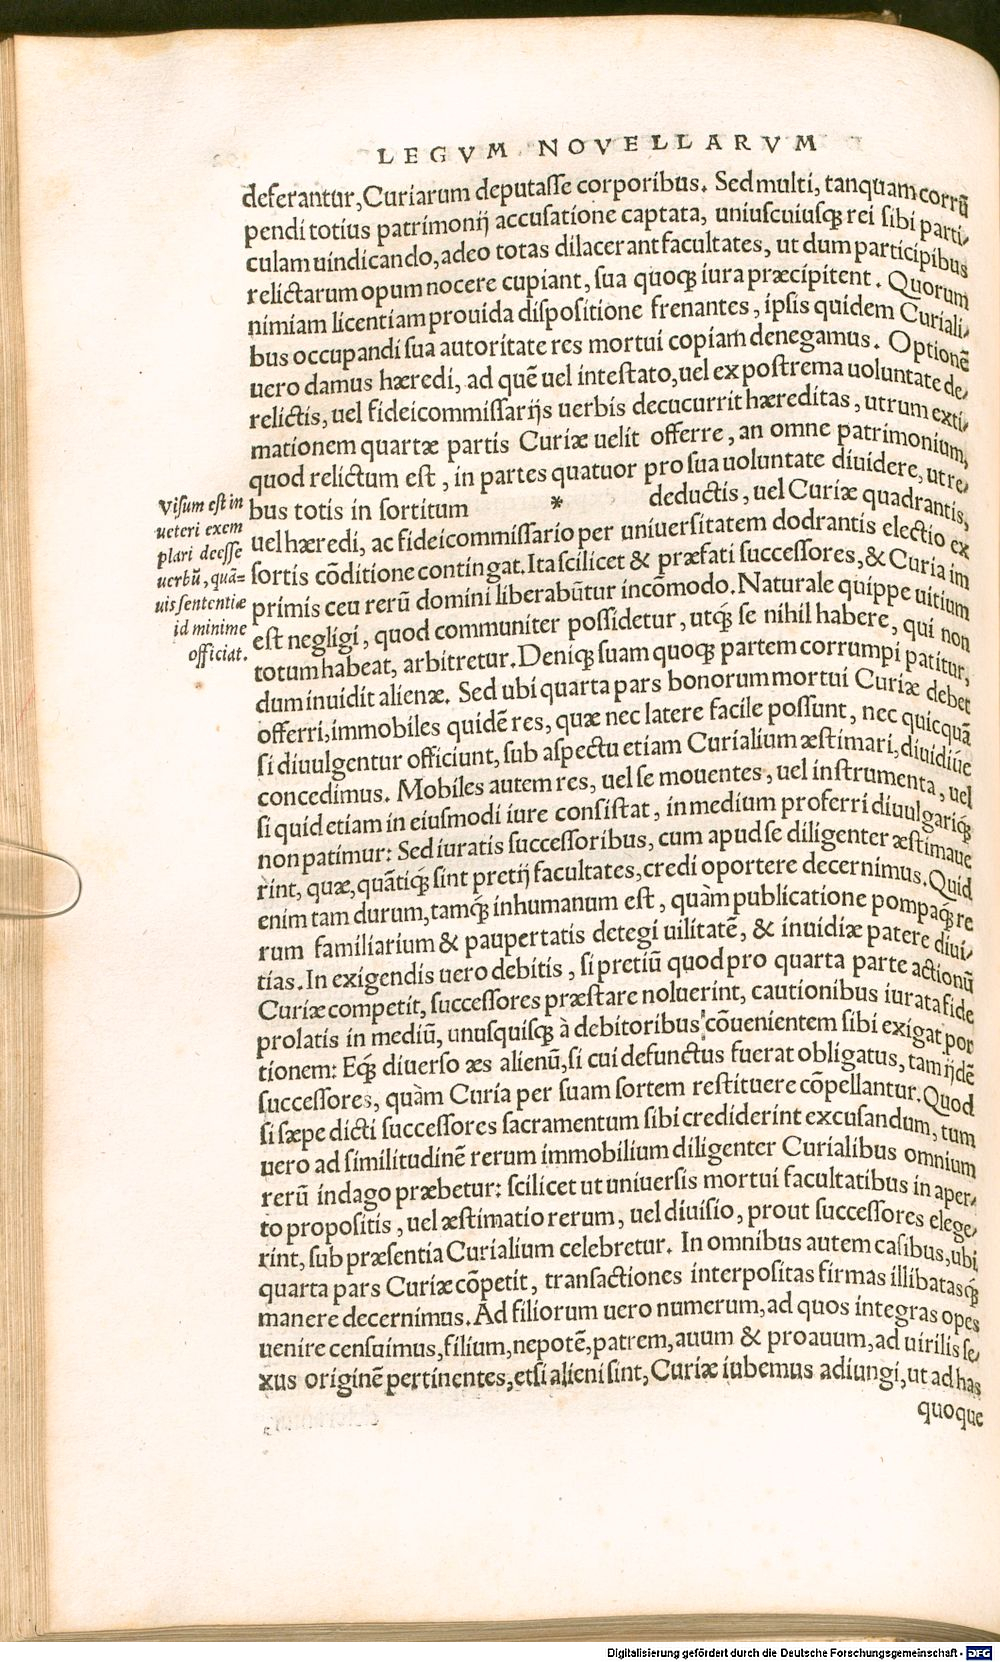 LEGVM NOVELLARVM
deferantur, Curiarum deputasse corporibus. Sed multi, tanquam corrũ
pendi totius patrimonij accusatione captata, uniuscuiusq; rei sibi parti-
culam uindicando, adeo totas dilacerant facultates, ut dum participibus
relictarum opum nocere cupiant, sua quoq; iura præcipitent. Quorum
nimiam licentiam prouida dispositione frenantes, ipsis quidem Curiali-
bus occupandi sua autoritate res mortui copiam denegamus. Optionẽ
uero damus hæredi, ad quẽ uel intestato, uel ex postrema uoluntate de-
relictis, uel fideicommissarijs uerbis decucurrit hæreditas, utrum exti-
mationem quartæ partis Curiæ uelit offerre, an omne patrimonium,
quod relictum est, in partes quatuor pro sua uoluntate diuidere, ut re-
bus totis in sortitum * deductis, uel Curiæ quadrantis,
uel hæredi, ac fideicommissario per uniuersitatem dodrantis electio ex
sortis cõditione contingat. Ita scilicet & præfati successores, & Curia im
primis ceu rerũ domini liberabũtur incõmodo. Naturale quippe uitium
est negligi, quod communiter possidetur, utq; se nihil habere, qui non
totum habeat, arbitretur. Deniq; suam quoq; partem corrumpi patitur,
dum inuidit alienæ. Sed ubi quarta pars bonorum mortui Curiæ debet
offerri, immobiles quidẽ res, quæ nec latere facile possunt, nec quicquã
si diuulgentur officiunt, sub aspectu etiam Curialium æstimari, diuidiúe
concedimus. Mobiles autem res, uel se mouentes, uel instrumenta, uel
si quid etiam in eiusmodi iure consistat, in medium proferri diuulgariq́;
non patimur: Sed iuratis successoribus, cum apud se diligenter æstimaue
rint, quæ, quãtiq́; sint pretij facultates, credi oportere decernimus. Quid
enim tam durum, tamq́; inhumanum est, quàm publicatione pompaq́; re
rum familiarium & paupertatis detegi uilitatẽ, & inuidiæ patere diui-
tias. In exigendis uero debitis, si pretiũ quod pro quarta parte actionũ
Curiæ competit, successores præstare noluerint, cautionibus iurata fide
prolatis in mediũ, unusquisq; à debitoribus cõuenientem sibi exigat por
tionem: Eq́; diuerso æs alienũ, si cui defunctus fuerat obligatus, tam ijdẽ
successores, quàm Curia per suam sortem restituere cõpellantur. Quod
si sæpe dicti successores sacramentum sibi crediderint excusandum, tum
uero ad similitudinẽ rerum immobilium diligenter Curialibus omnium
rerũ indago præbetur: scilicet ut uniuersis mortui facultatibus in aper-
to propositis, uel æstimatio rerum, uel diuisio, prout successores elege-
rint, sub præsentia Curialium celebretur. In omnibus autem casibus, ubi
quarta pars Curiæ cõpetit, transactiones interpositas firmas illibatasq́;
manere decernimus. Ad filiorum uero numerum, ad quos integras opes
uenire censuimus, filium, nepotẽ, patrem, auum & proauum, ad uirilis se-
xus originẽ pertinentes, etsi alieni sint, Curiæ iubemus adiungi, ut ad has
quoque
Visum est in
ueteri exem
plari deesse
uerbũ, quã=
uis sententiæ
id minime
officiat.
Digitalisierung gefördert durch die Deutsche Forschungsgemeinschaft - DFG